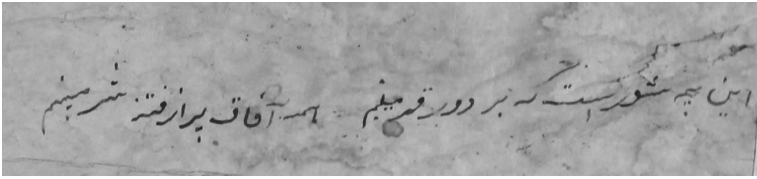 این چه شوریست که بر دور قمر میبینم همه آفاق پر از فتنه و شر میبینم